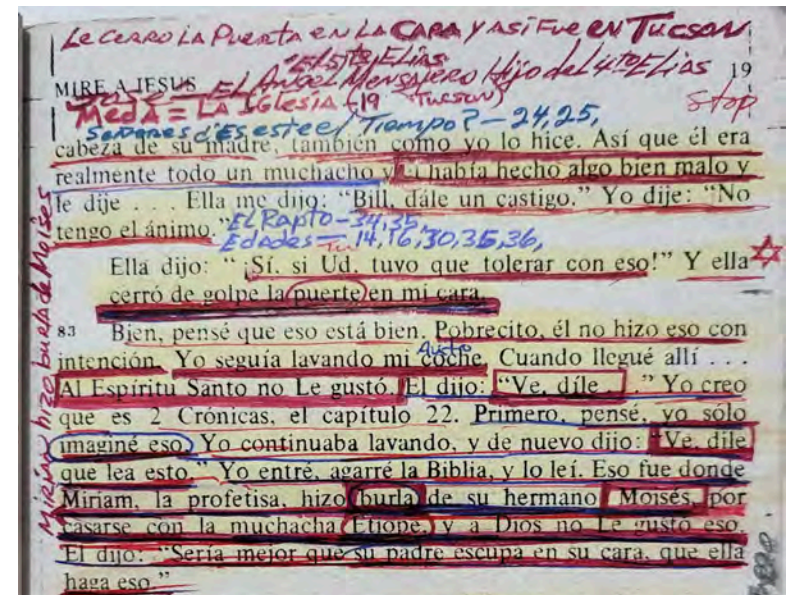 Le cerro la Puerta en la CARA Y ASí Fue en Tucson
"El 5to Elías
MIRE A JESUS El Angel Mensajero Hijo del 4to Elías 19
Meda = La Iglesia -19 Tucson) Stop
Sermones d'Es este el Tiempo? - 24, 25,
cabeza de su madre, también como yo lo hice. Así que él era
realmente todo un muchacho y él había hecho algo bien malo y
le dije . . . Ella me dijo: “Bill, dále un castigo.” Yo dije: “No
tengo el ánimo.” El Rapto - 34, 35,
Edades = 14, 16, 30, 35, 36,
Ella dijo: “¡Sí, si Ud. tuvo que tolerar con eso!” Y ella
cerró de golpe la puerte en mi cara.
83 Bien, pensé que eso está bien. Pobrecito, él no hizo eso con
intención. Yo seguía lavando mi coche. Cuando llegué allí . . .
Al Espíritu Santo no Le gustó. El dijo: “Ve, díle . . .” Yo creo
que es 2 Crónicas, el capítulo 22. Primero, pensé, yo sólo
imaginé eso. Yo continuaba lavando, y de nuevo dijo: “Ve, dile
que lea esto.” Yo entré, agarré la Biblia, y lo leí. Eso fue donde
Miriam, la profetisa, hizo burla de su hermano Moisés, por
casarse con la muchacha Etiope, y a Dios no Le gustó eso.
El dijo: “Sería mejor que su padre escupa en su cara, que ella
haga eso.”
Miriam hizo burla de Moises